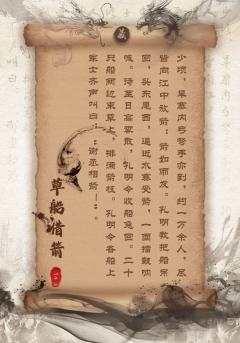 少顷，旱寨内弓弩手亦到，约一万余人，尽
皆向江中放箭：箭如雨发。孔明教把船吊
回，头东尾西，逼近水寨受箭，一面擂鼓呐
喊。待至日高雾散，孔明令收船急回。二十
只船两边束草上，排满箭枝。孔明令各船上
军士齐声叫曰：“谢丞相箭！”。
草船借箭